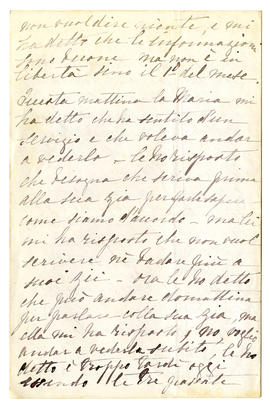 non vuol dire niente, e mi
ha detto che le informazioni
sono buone ma non è in
libertà sino il 1° del mese.
Questa mattina la Maria mi
ha detto che ha sentito d'un
servizio e che voleva andar
a vederlo - le ho risposto
che bisogna che scriva prima
alla sua zia per
come siamo d'accordo - ma lei
mi ha risposto che non vuol
scrivere nè badare più a
suoi zii - ora le ho detto
che può andare domattina
per parlare colla sua zia, ma
ella mi ha risposto, no, voglio
andar a vederla subito, le ho
detto è troppo tardi oggi
essendo le tre passate